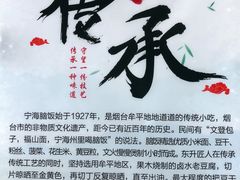 传承
守望一份技艺
传承一种味道
宁海脑饭始于1927年，是烟台牟平地地道道的传统小吃，烟
台市的非物质文化遗产，距今已有近百年的历史。民间有“文登包
子，福山面，宁海州里喝脑饭”的说法。脑饭精选优质小米面、豆干、
粉丝、菠菜、花生米、黄豆粒，文火慢熬制小时而成。东升匠人在传承
传统工艺的同时，坚持选用牟平地区，果木烧制的卤水老豆腐，切
片晾晒至金黄色，再切丁反复晾晒，直至出油，最大程度的把豆干